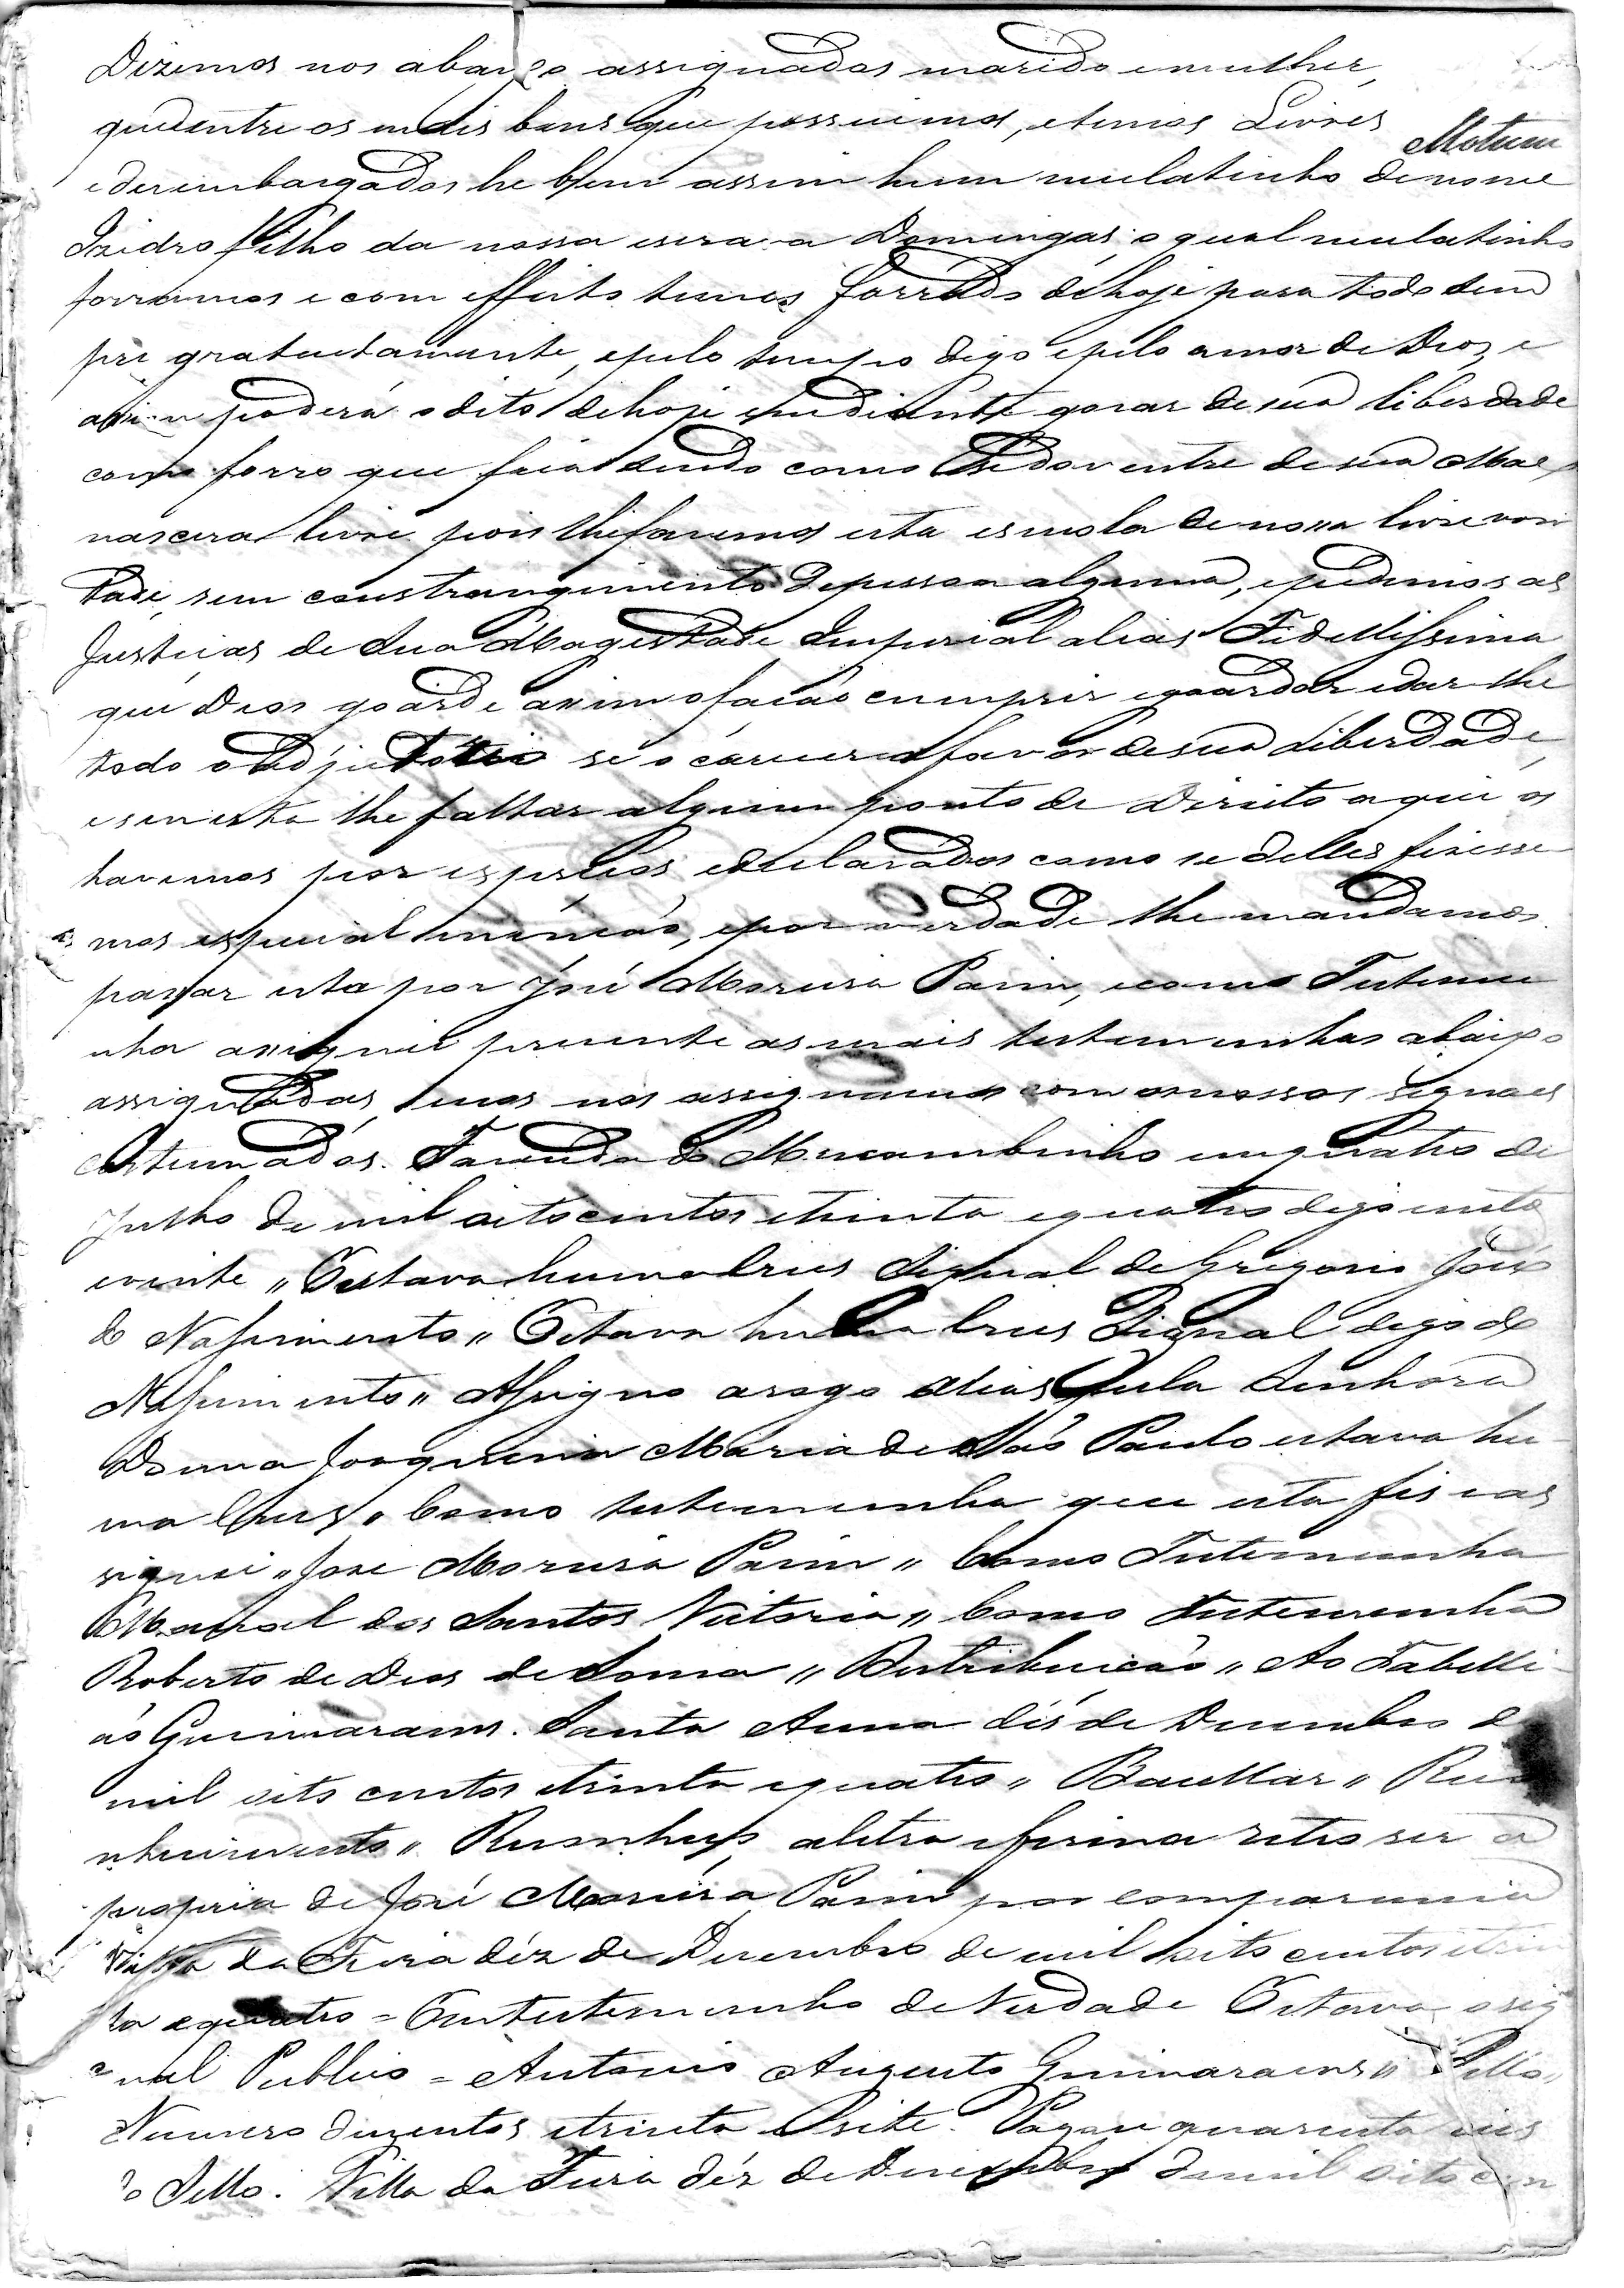 Dizemos nos abaixo assignados marido emulher,
quedentre os mais bens que possuimos, etemos Livres
edezembargados he bem assim hum mulatinho denome
Izidro filho da nossa escrava Domingas, o qual mulatinho
forramos e com effeito temos forrado dehoje para todo sem
pre gratuctamente, epelo tempo digo epelo amor de Deos, e
assim poderá odito dehoje emdiante gosar de sua liberdade
como forro que fica sendo como se do ventre de sua Mae
nascera livre pois lhe fazemos esta esmola de nossa livre von
tade, sem constrangimento depessoa alguma, epedimos as
Justicas de Sua Magestade Imperial alias Fidellissima
que Deos goarde assim ofação cumprir egoardar edar lhe
todo o adjutorio se o carecer afavor desua Liberdade,
esenesta lhe faltar algum ponto de Direito aqui os
havemos por espreços edeclarados como se delles fizesse
mos especial menção, epor verdade lhe mandamos
passar esta por José Moreira Pacim, ecomo Testemu
nha assignei presente as mais testemunhas abaixo
assignadas, enos nos assignamos com os nossos signaes
costumados. Fazenda do Mucambinho em quatro de
Julho de mil oitocentos etrinta equatro digo eoito
evinte „ Estava huma crus Signal de Gregorio José
do Nascimento „ Estava huma crus Signal digo do
Nascimento „ Assigno arogo alias pela Senhora
Donna Joaquina Maria de São Paulo estava hu
ma Crus „ Como testemunha que esta fis eas
signei „ Jose Moreira Pacim „ Como Testemunha
Manoel dos Santos Victoria „ Como Testemunha
Roberto de Deos de Souza „ Destribuicão „ Ao Tabelli
ão Guimaraens. Santa Anna dés de Dezembro de
mil oito centos etrinta equatro „ Bacellar „ Reco
nhecimento „ Reconheço aletra efirma retro ser a
propria de José Moreira Pacim por comparacia
Villa da Feira déz de Dezembro de mil oito centos etrin
ta equatro = Emtestemunho deVerdade Estava osig
nal Publico = Antonio Augusto Guimaraens „ Sello
Numero duzentos etrinta esete. Pagou quarenta reis
do Sello. Villa da Feira déz de Dezembro demil oito cen